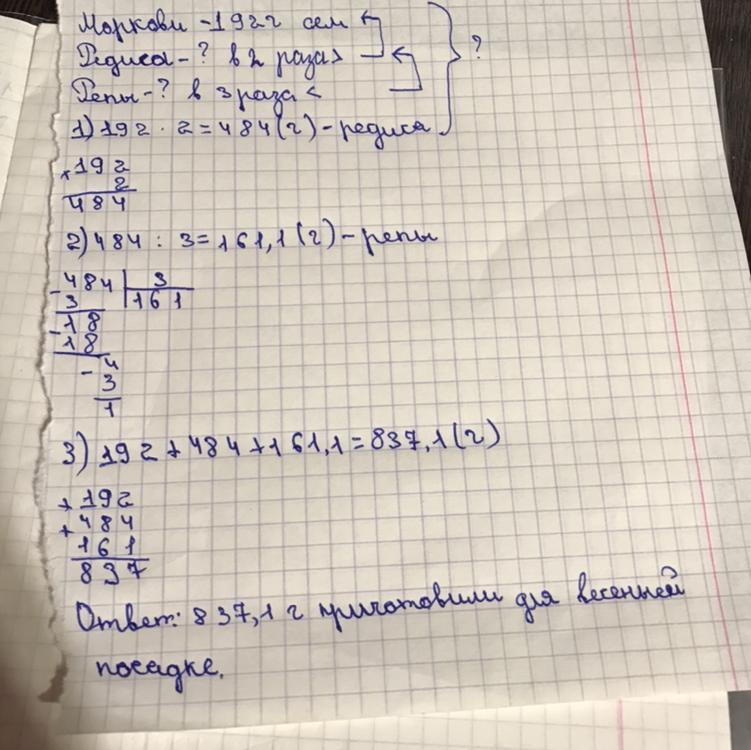 Моркови - 192 г сем
Редиса - ? в 2 раза >
Репы - ? в 3 раза <
?
1) 192 · 2 = 484 (г) - редиса
× 192
2
484
2) 484 : 3 = 161,1 (г) - репы
- 484 | 3
3 | 161
- 18
18
- 4
3
1
3) 192 + 484 + 161,1 = 837,1 (г)
+ 192
+ 484
161
837
Ответ: 837,1 г приготовили для весенней
посадке.